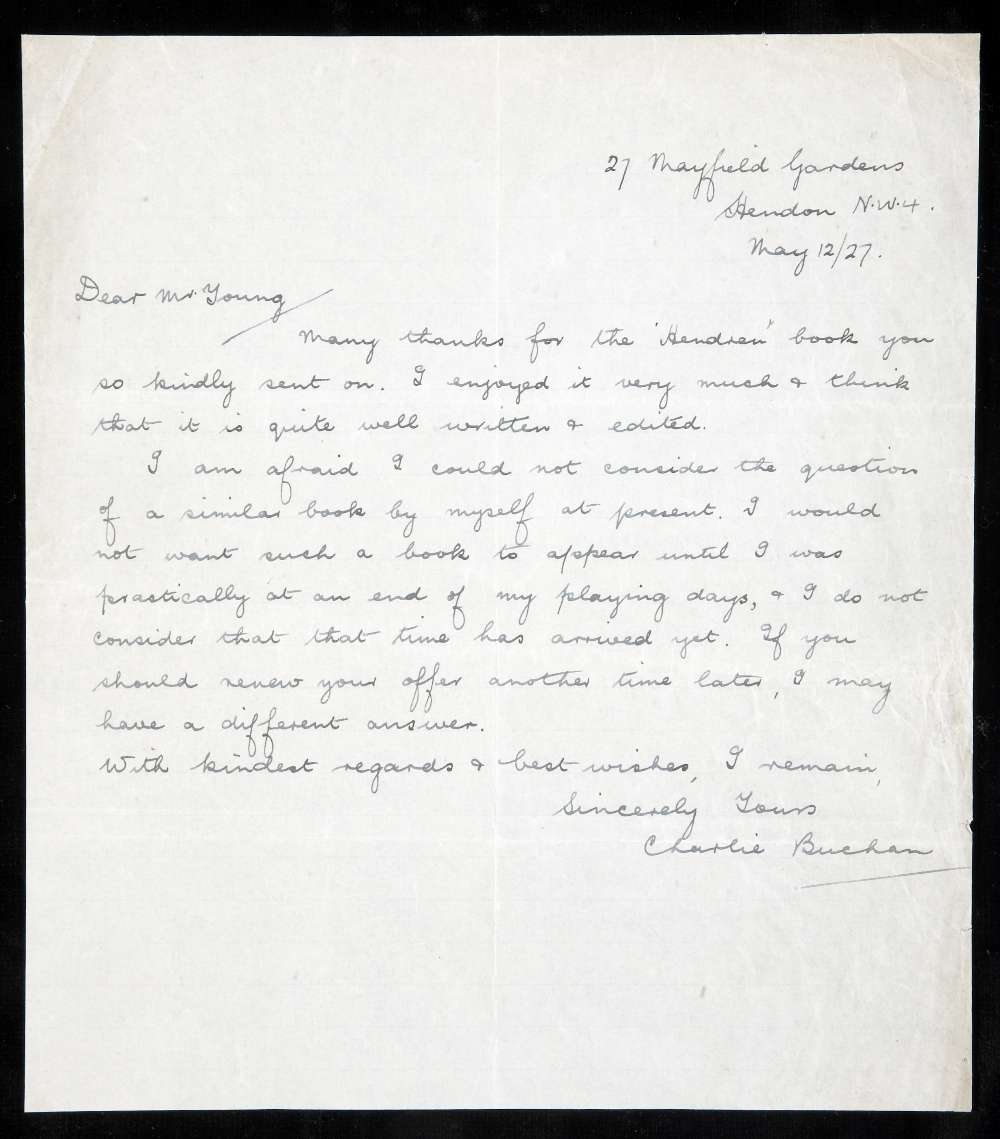 27 Mayfield Gardens
Hendon N.W.4.
May 12/27.
Dear Mr. Young
Many thanks for the "Hendren" book you
so kindly sent on. I enjoyed it very much & think
that it is quite well written & edited.
I am afraid I could not consider the question
of a similar book by myself at present. I would
not want such a book to appear until I was
practically at an end of my playing days, & I do not
consider that that time has arrived yet. If you
should renew your offer another time later, I may
have a different answer.
With kindest regards & best wishes, I remain,
Sincerely Yours
Charlie Buchan